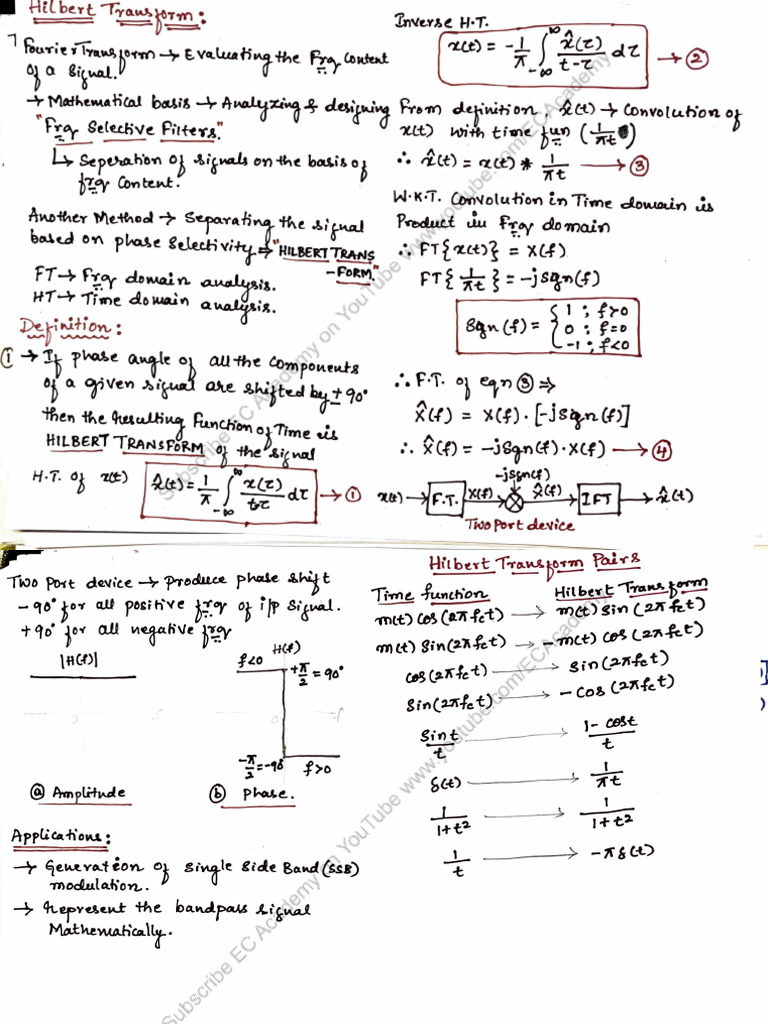 Hilbert Transform:
Fourier Transform → Evaluating the Frq Content
of a Signal.
→ Mathematical basis → Analyzing & designing
"Frq Selective Filters"
↳ Seperation of signals on the basis of
frq Content.
Another Method → Separating the signal
based on phase Selectivity ⇒ "HILBERT TRANS
-FORM."
FT → Frq domain analysis.
HT → Time domain analysis.
Definition:
① → If phase angle of all the components
of a given signal are shifted by ± 90°
then the Resulting Function of Time is
HILBERT TRANSFORM of the signal
H.T. of x(t) x̂(t) = 1/π ∫_{-∞}^{∞} x(τ)/t-τ dτ → ①
Inverse H.T.
x(t) = -1/π ∫_{-∞}^{∞} x̂(τ)/t-τ dτ → ②
From definition, x̂(t) → Convolution of
x(t) with time fun (1/πt)
∴ x̂(t) = x(t) * 1/πt → ③
W.K.T. Convolution in Time domain is
Product in Frqy domain
∴ FT{x(t)} = X(f)
FT{1/πt} = -jSgn(f)
Sgn(f) = { 1 ; f>0
0 ; f=0
-1 ; f<0
∴ F.T. of eqn ③ ⇒
X̂(f) = X(f) . [-jSgn(f)]
∴ X̂(f) = -jSgn(f) . X(f) → ④
-jSgn(f)
x(t) → F.T. X(f) ⊗ X̂(f) IFT → x̂(t)
Two Port device
Two Port device → Produce phase shift
-90° for all positive frq of i/p signal.
+90° for all negative frq
|H(f)|
H(f)
f<0 +π/2 = 90°
-π/2 = -90° f>0
ⓐ Amplitude ⓑ Phase.
Applications:
→ Generation of single Side Band (SSB)
modulation.
→ Represent the bandpass signal
Mathematically.
Hilbert Transform Pairs
Time function Hilbert Transform
m(t) cos(2πfct) → m(t) sin(2πfct)
m(t) Sin(2πfct) → -m(t) cos(2πfct)
cos(2πfct) → sin(2πfct)
Sin(2πfct) → -cos(2πfct)
Sint/t → 1-cost/t
δ(t) → 1/πt
1/1+t² → 1/1+t²
1/t → -πδ(t)
Subscribe EC Academy on YouTube www.youtube.com/ECAcademy
Subscribe EC Academy on YouTube www.youtube.com/ECAcademy